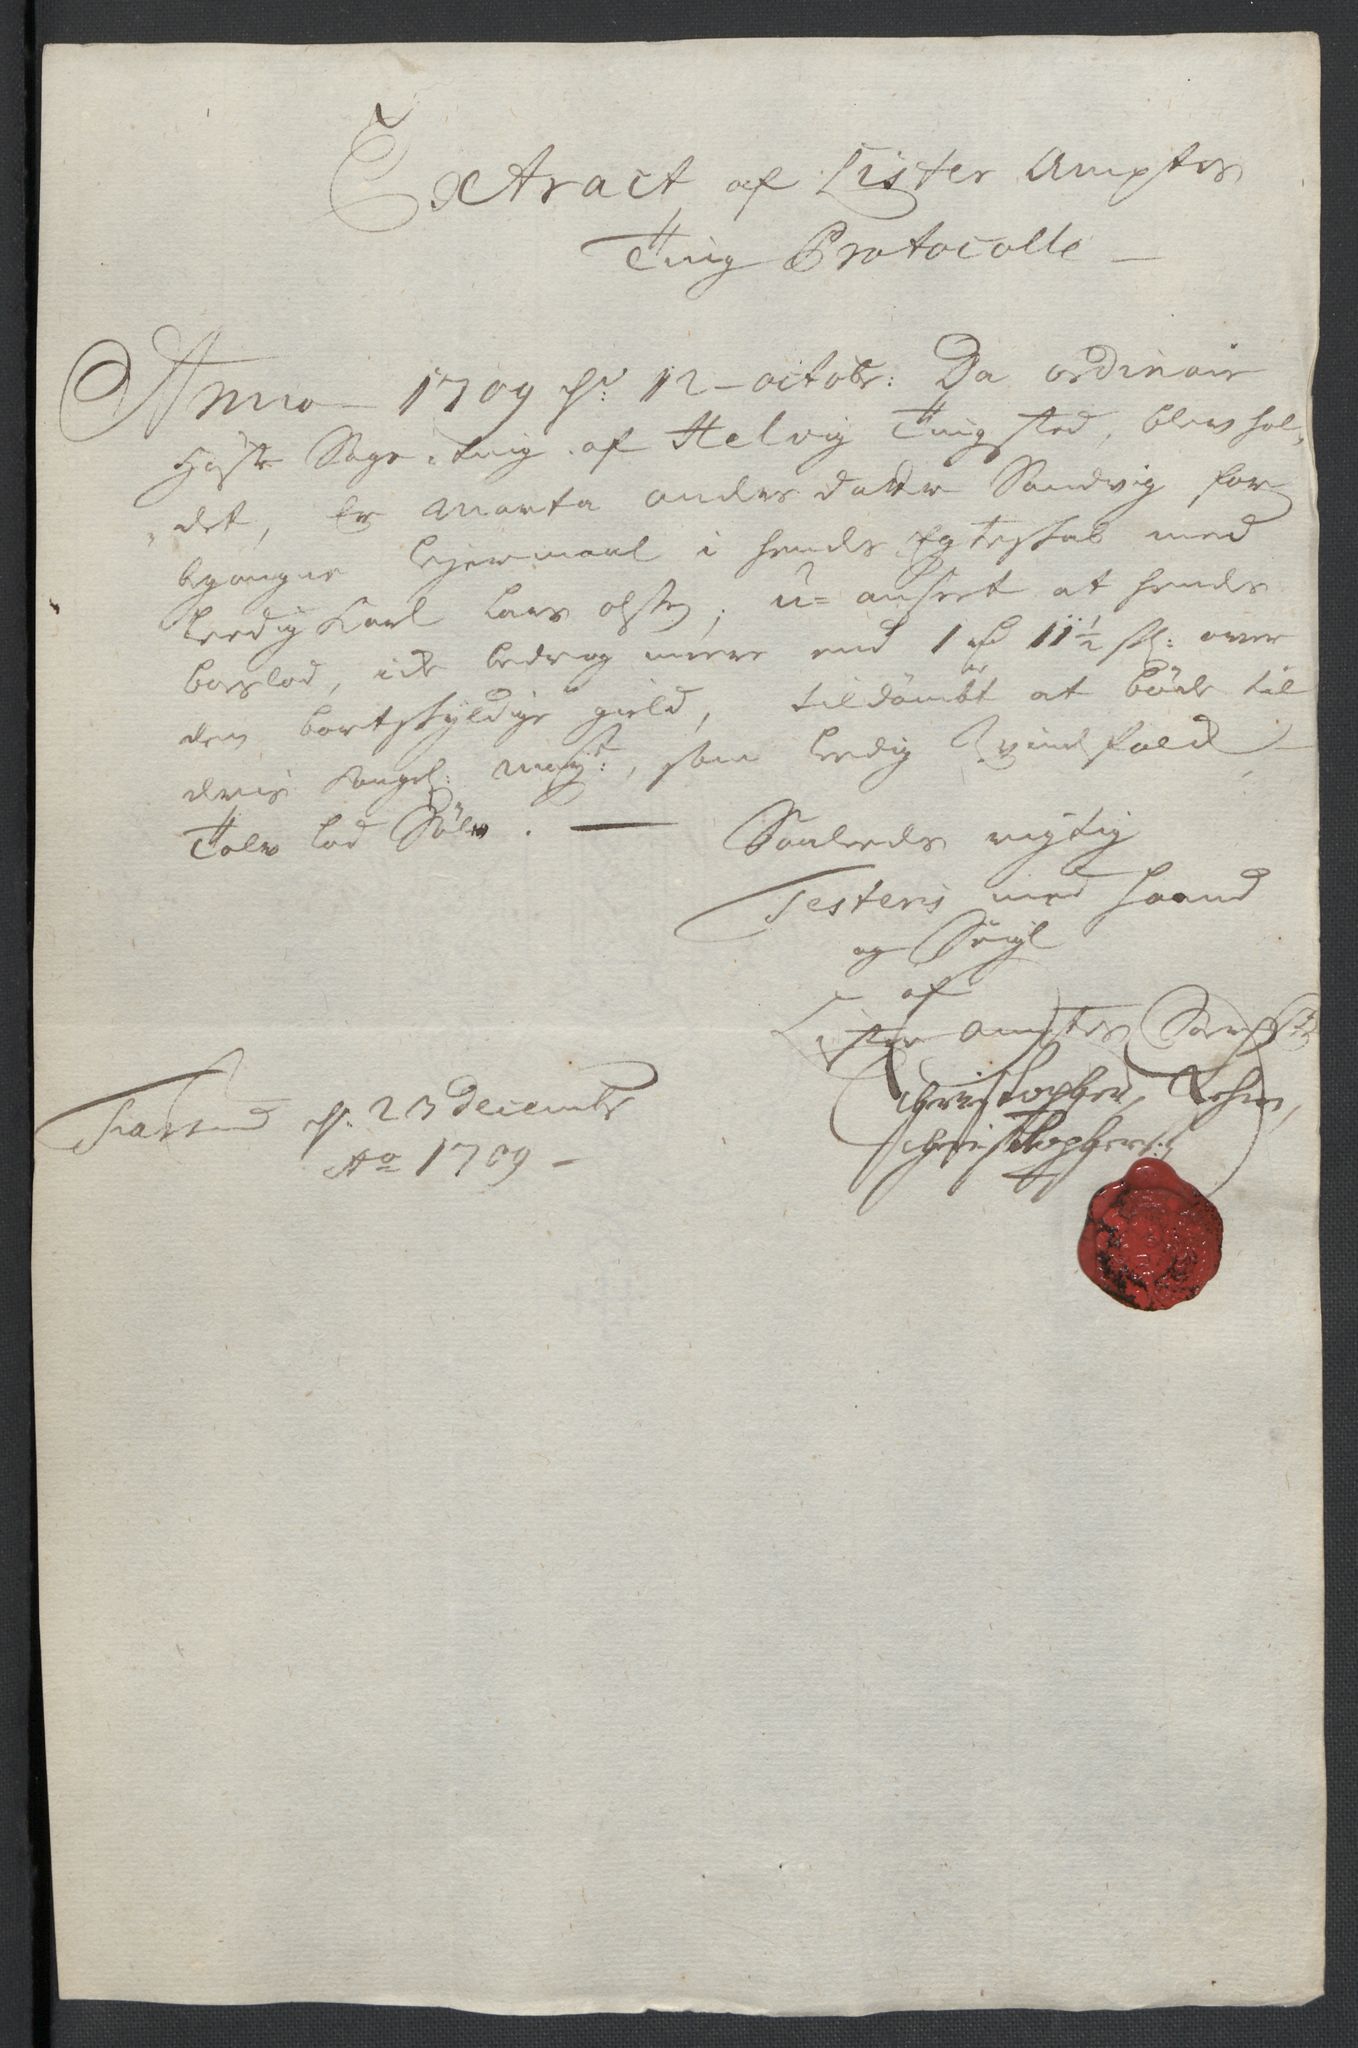 Extract af Lister Ampts
Ting Protocolle
Anno 1709 d: 12 octobr: Da ordinair
Høste Sage-ting af Helvig Tingsted, blev hol-
det, Er Marta anders datter Sandvig for
begangne lejermaal i hendis Egteskab med
leedig karl Lars olsen, u=anseet at hendis
boeslod, icke bedrog meere end 1 rd 11½ sk: over
den bortskyldige gield, tildømbt at bøde til
deris kongel: Mayt:, som leedig Qvindfolck
Tolv lod Sølv.
Saaleedes rigtig
Testeris med haand
og Seigl
af
Lister ampts
Christopher
Christophers:
Farsund d: 23 Decembr
Ao 1709